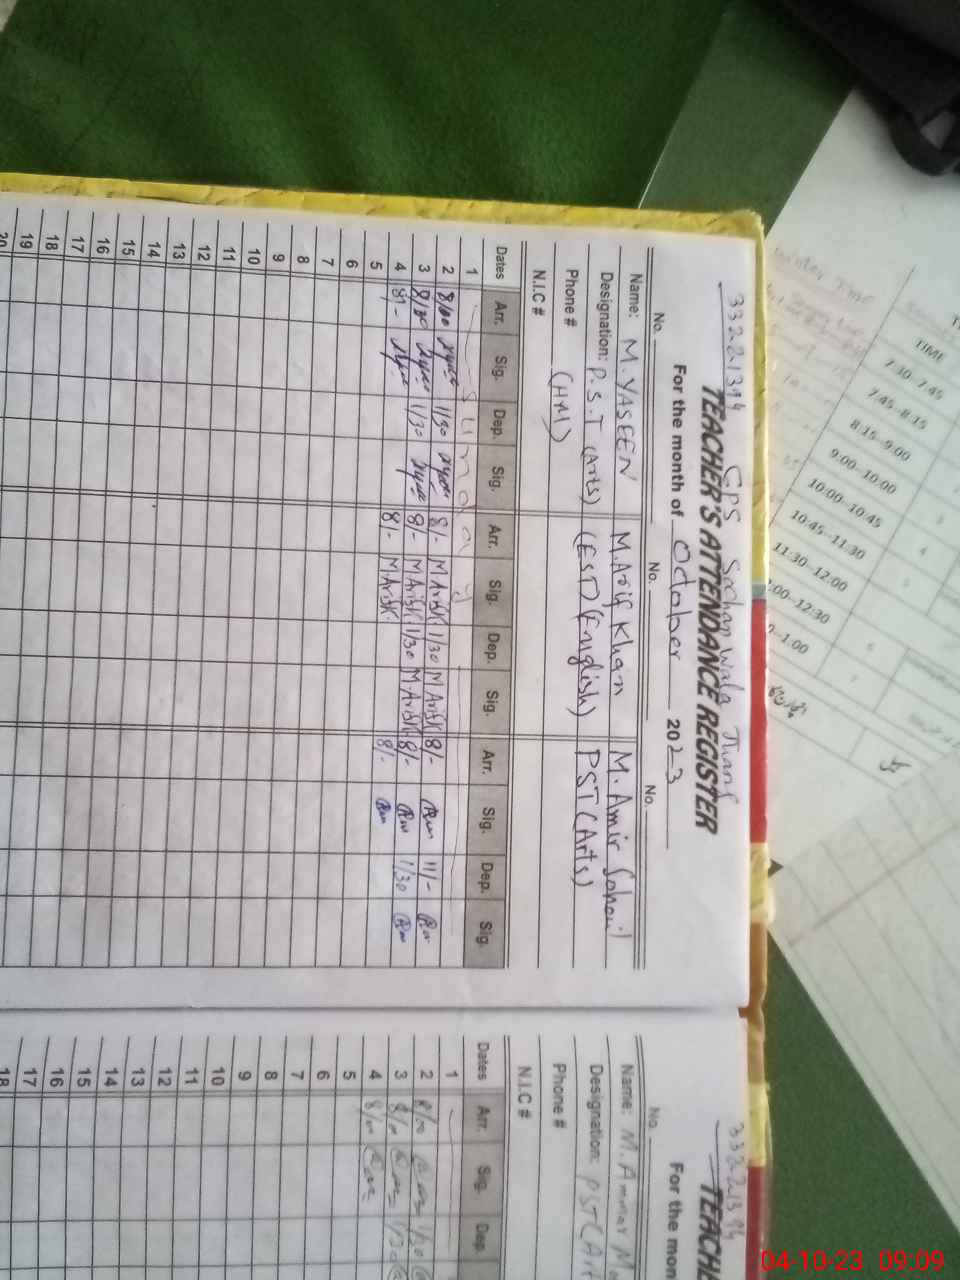 33221394 GPS Sachanwala Thang
TEACHER'S ATTENDANCE REGISTER
For the month of October 2023
No. No. No.
Name: M. YASEEN M. Arif Khan M. Amir Sohail
Designation: P.S.T (Arts) (EST) (English) PST (Arts)
Phone # (HM)
N.I.C #
Dates Arr. Sig. Dep. Sig. Arr. Sig. Dep. Sig. Arr. Sig. Dep. Sig.
1 Sunday
2 8/00 1/30 8/- M Arif K 1/30 M Arif K 8/- 11/-
3 8/00 1/30 8/- M Arif K 1/30 M. Arif K 8/- 1/30
4 8/- 8/- M. Arif K 8/-
5
6
7
8
9
10
11
12
13
14
15
16
17
18
19
20
33221394
TEACHE
For the mon
No.
Name: M. Ammar
Designation: PST (Art
Phone #
N.I.C #
Dates Arr. Sig. Dep.
1
2 8/00 1/30
3 8/00 1/30
4 8/00
5
6
7
8
9
10
11
12
13
14
15
16
17
18
TIME
7:30-7:45
7:45-8:15
8:15-9:00
9:00-10:00
10:00-10:45
10:45-11:30
11:30-12:00
:00-12:30
-1:00
04-10-23 09:09